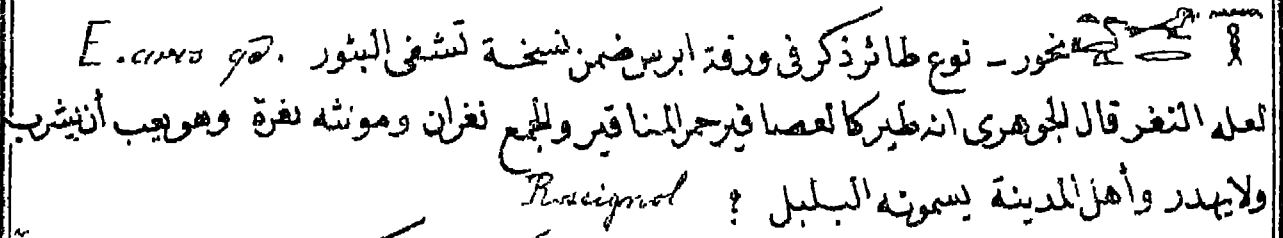 نحور - نوع طائر ذكر فى ورقة ابرس ضمن نسخة تشفى البثور .E
لعله النغر قال الجوهرى انه طير كالعصافير حمر المناقير والجمع نغران ومونثه نغرة وهو يعب أن يشرب
ولا يهدر وأهل المدينة يسمونه البلبل ؟ Rossignol